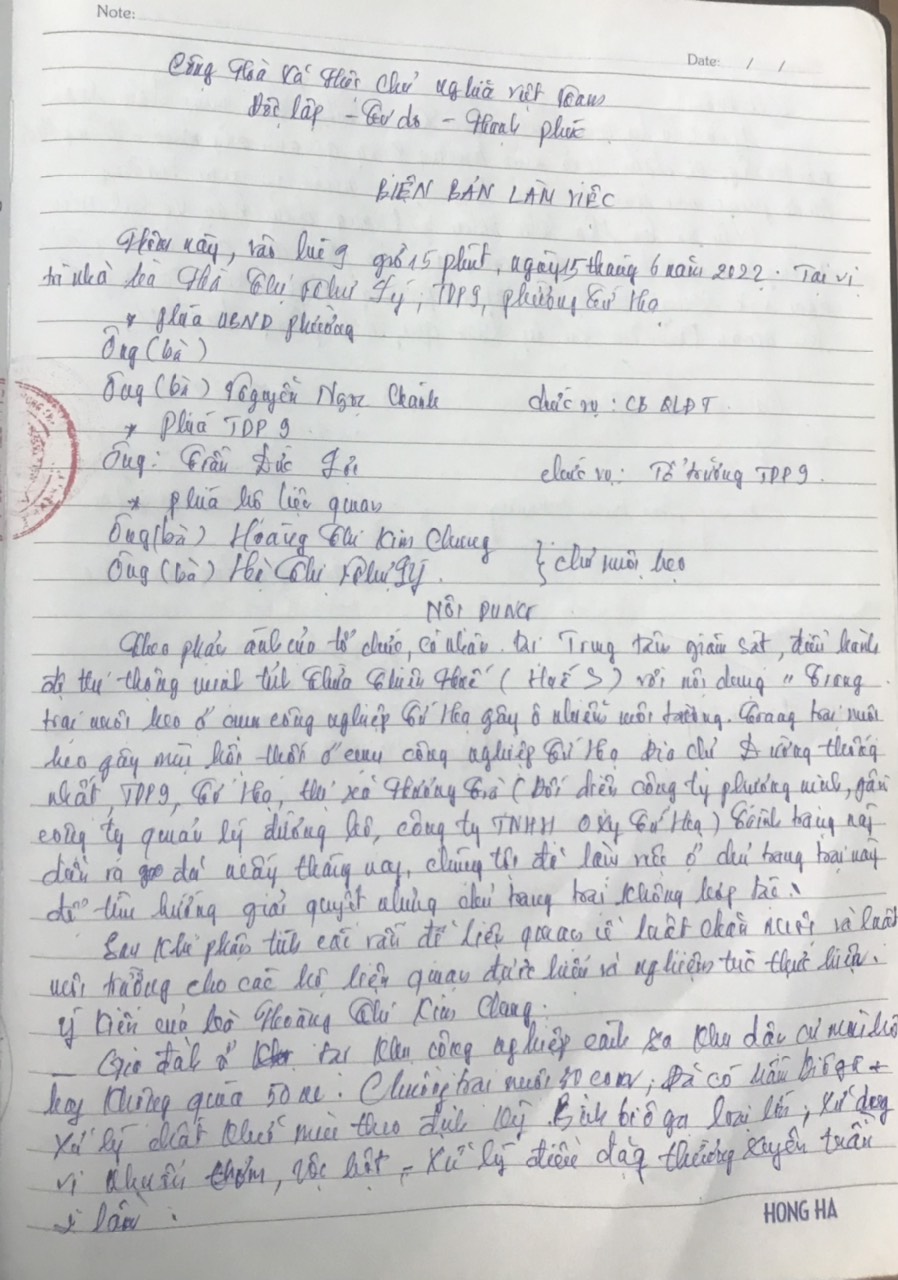 Note:
Date: / /
Cộng Hoà Xã Hội Chủ nghĩa Việt Nam
Độc lập - Tự do - Hạnh phúc
BIÊN BẢN LÀM VIỆC
Hôm nay, vào lúc 9 giờ 15 phút, ngày 15 tháng 6 năm 2022. Tại vị
trí nhà bà Hồ Thị Như Tý, TDP9, phường Tứ Hạ
* phía UBND phường
Ông (bà)
Ông (bà) Nguyễn Ngọc Chánh chức vụ: CB QLĐT
* Phía TDP 9
Ông: Trần Đức chức vụ: Tổ trưởng TDP9.
* phía hộ liên quan
Ông (bà) Hoàng Thị Kim Chung
Ông (bà) Hồ Thị Như Tý. } chủ nuôi heo
NỘI DUNG
Theo phản ánh của tổ chức, cá nhân tại Trung tâm giám sát, điều hành
đô thị thông minh tỉnh Thừa Thiên Huế (Huế S) với nội dung "Trang
trại nuôi heo ở cụm công nghiệp Tứ Hạ gây ô nhiễm môi trường. Trang trại nuôi
heo gây mùi hôi thối ở cụm công nghiệp Tứ Hạ Địa chỉ Đường thống
nhất, TDP9, Tứ Hạ, thị xã Hương Trà (Đối diện công ty phương minh, gần
công ty quản lý đường bộ, công ty TNHH Oxy Tứ Hạ) Tình trạng này
diễn ra đã mấy tháng nay, chúng tôi đã làm việc ở chủ trang trại này
để tìm hướng giải quyết nhưng chủ trang trại không hợp tác.
Sau khi phân tích các vấn đề liên quan về luật chăn nuôi và luật
môi trường cho các hộ liên quan được hiểu và nghiêm túc thực hiện.
Ý kiến của bà Hoàng Thị Kim Chung:
- Gia đình ở tại khu công nghiệp cách xa khu dân cư
hay không quá 50 m. Chuồng trại nuôi 30 con, Đã có hầm biôga +
xử lý chất khử mùi theo định kỳ. Bình biôga loại lớn, xử dụng
vi khuẩn thơm, - xử lý thường xuyên tuần
lần.
HONG HA